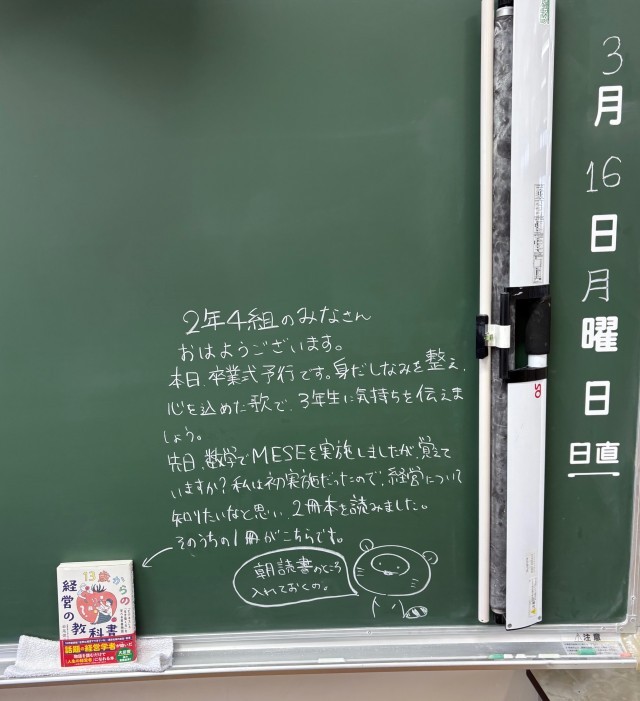 2年4組のみなさん
おはようございます。
本日、卒業式予行です。身だしなみを整え、
心を込めた歌で、3年生に気持ちを伝えま
しょう。
先日、数学でMESEを実施しましたが、覚えて
いますか?私は初実施だったので、経営について
知りたいなと思い、2冊本を読みました。
そのうちの1冊がこちらです。
朝読書のところ
入れておくの。
13歳からの
経営の
教科書
話題の経営学者が描いた
物語を読むだけで
「人生の経営者」になれる本
3
月
16
日
月
曜
日
日直
注意